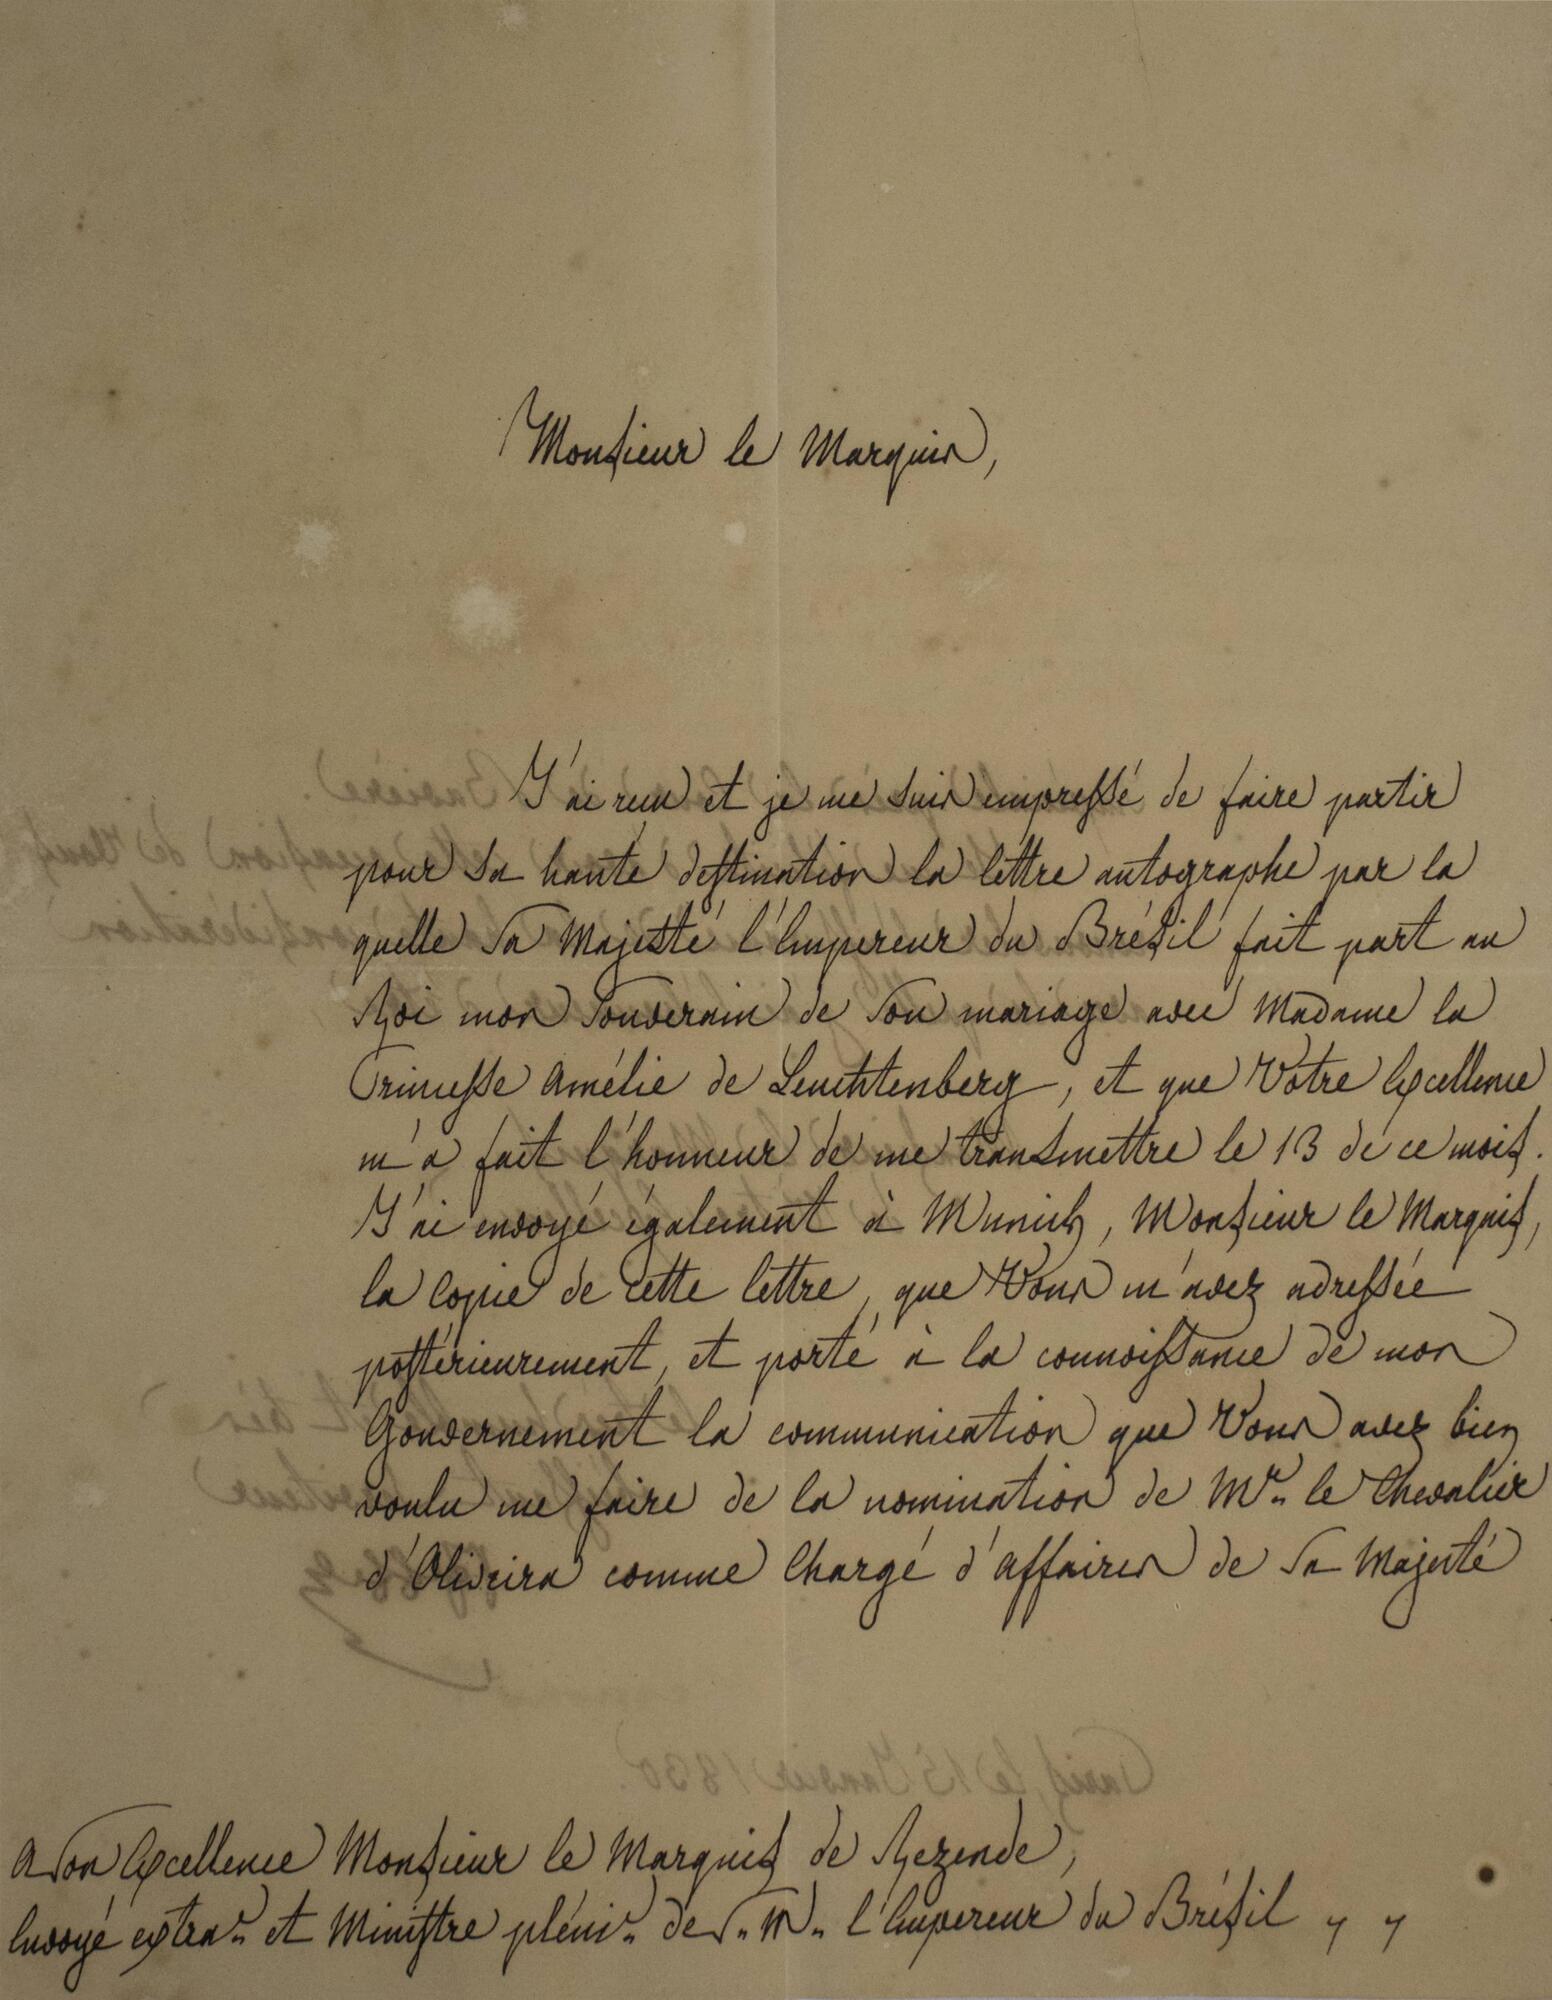 Monsieur le Marquis,
J'ai reçu et je me suis empressé de faire partir
pour sa haute destination la lettre autographe par la
quelle Sa Majesté l'Empereur du Brésil fait part au
Roi mon Souverain de Son mariage avec Madame la
Princesse Amélie de Leuchtenberg, et que Votre Excellence
m'a fait l'honneur de me transmettre le 13 de ce mois.
J'ai envoyé également à Munich, Monsieur le Marquis,
la copie de cette lettre, que Vous m'avez adressée
postérieurement, et porté à la connoissance de mon
Gouvernement la communication que Vous avez bien
voulu me faire de la nomination de Mr. le Chevalier
d'Oliveira comme Chargé d'affaires de Sa Majesté
Paris, le 15 Janvier 1830.
A Son Excellence Monsieur le Marquis de Rezende,
Envoyé extrar. et Ministre plénir. de S. M. l'Empereur du Brésil